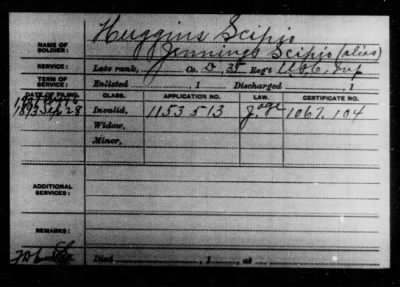 Huggins Scipio
NAME OF SOLDIER: Jennings Scipio (alias)
SERVICE: Late rank, Co. D, 35 Reg't U.S.C. Inf
TERM OF SERVICE: Enlisted , 1 Discharged , 1
DATE OF FILING. CLASS. APPLICATION NO. LAW. CERTIFICATE NO.
1893 Sep 28 Invalid, 1153 513 1067.104
Widow,
Minor,
ADDITIONAL SERVICES:
REMARKS:
Died , 1 , at